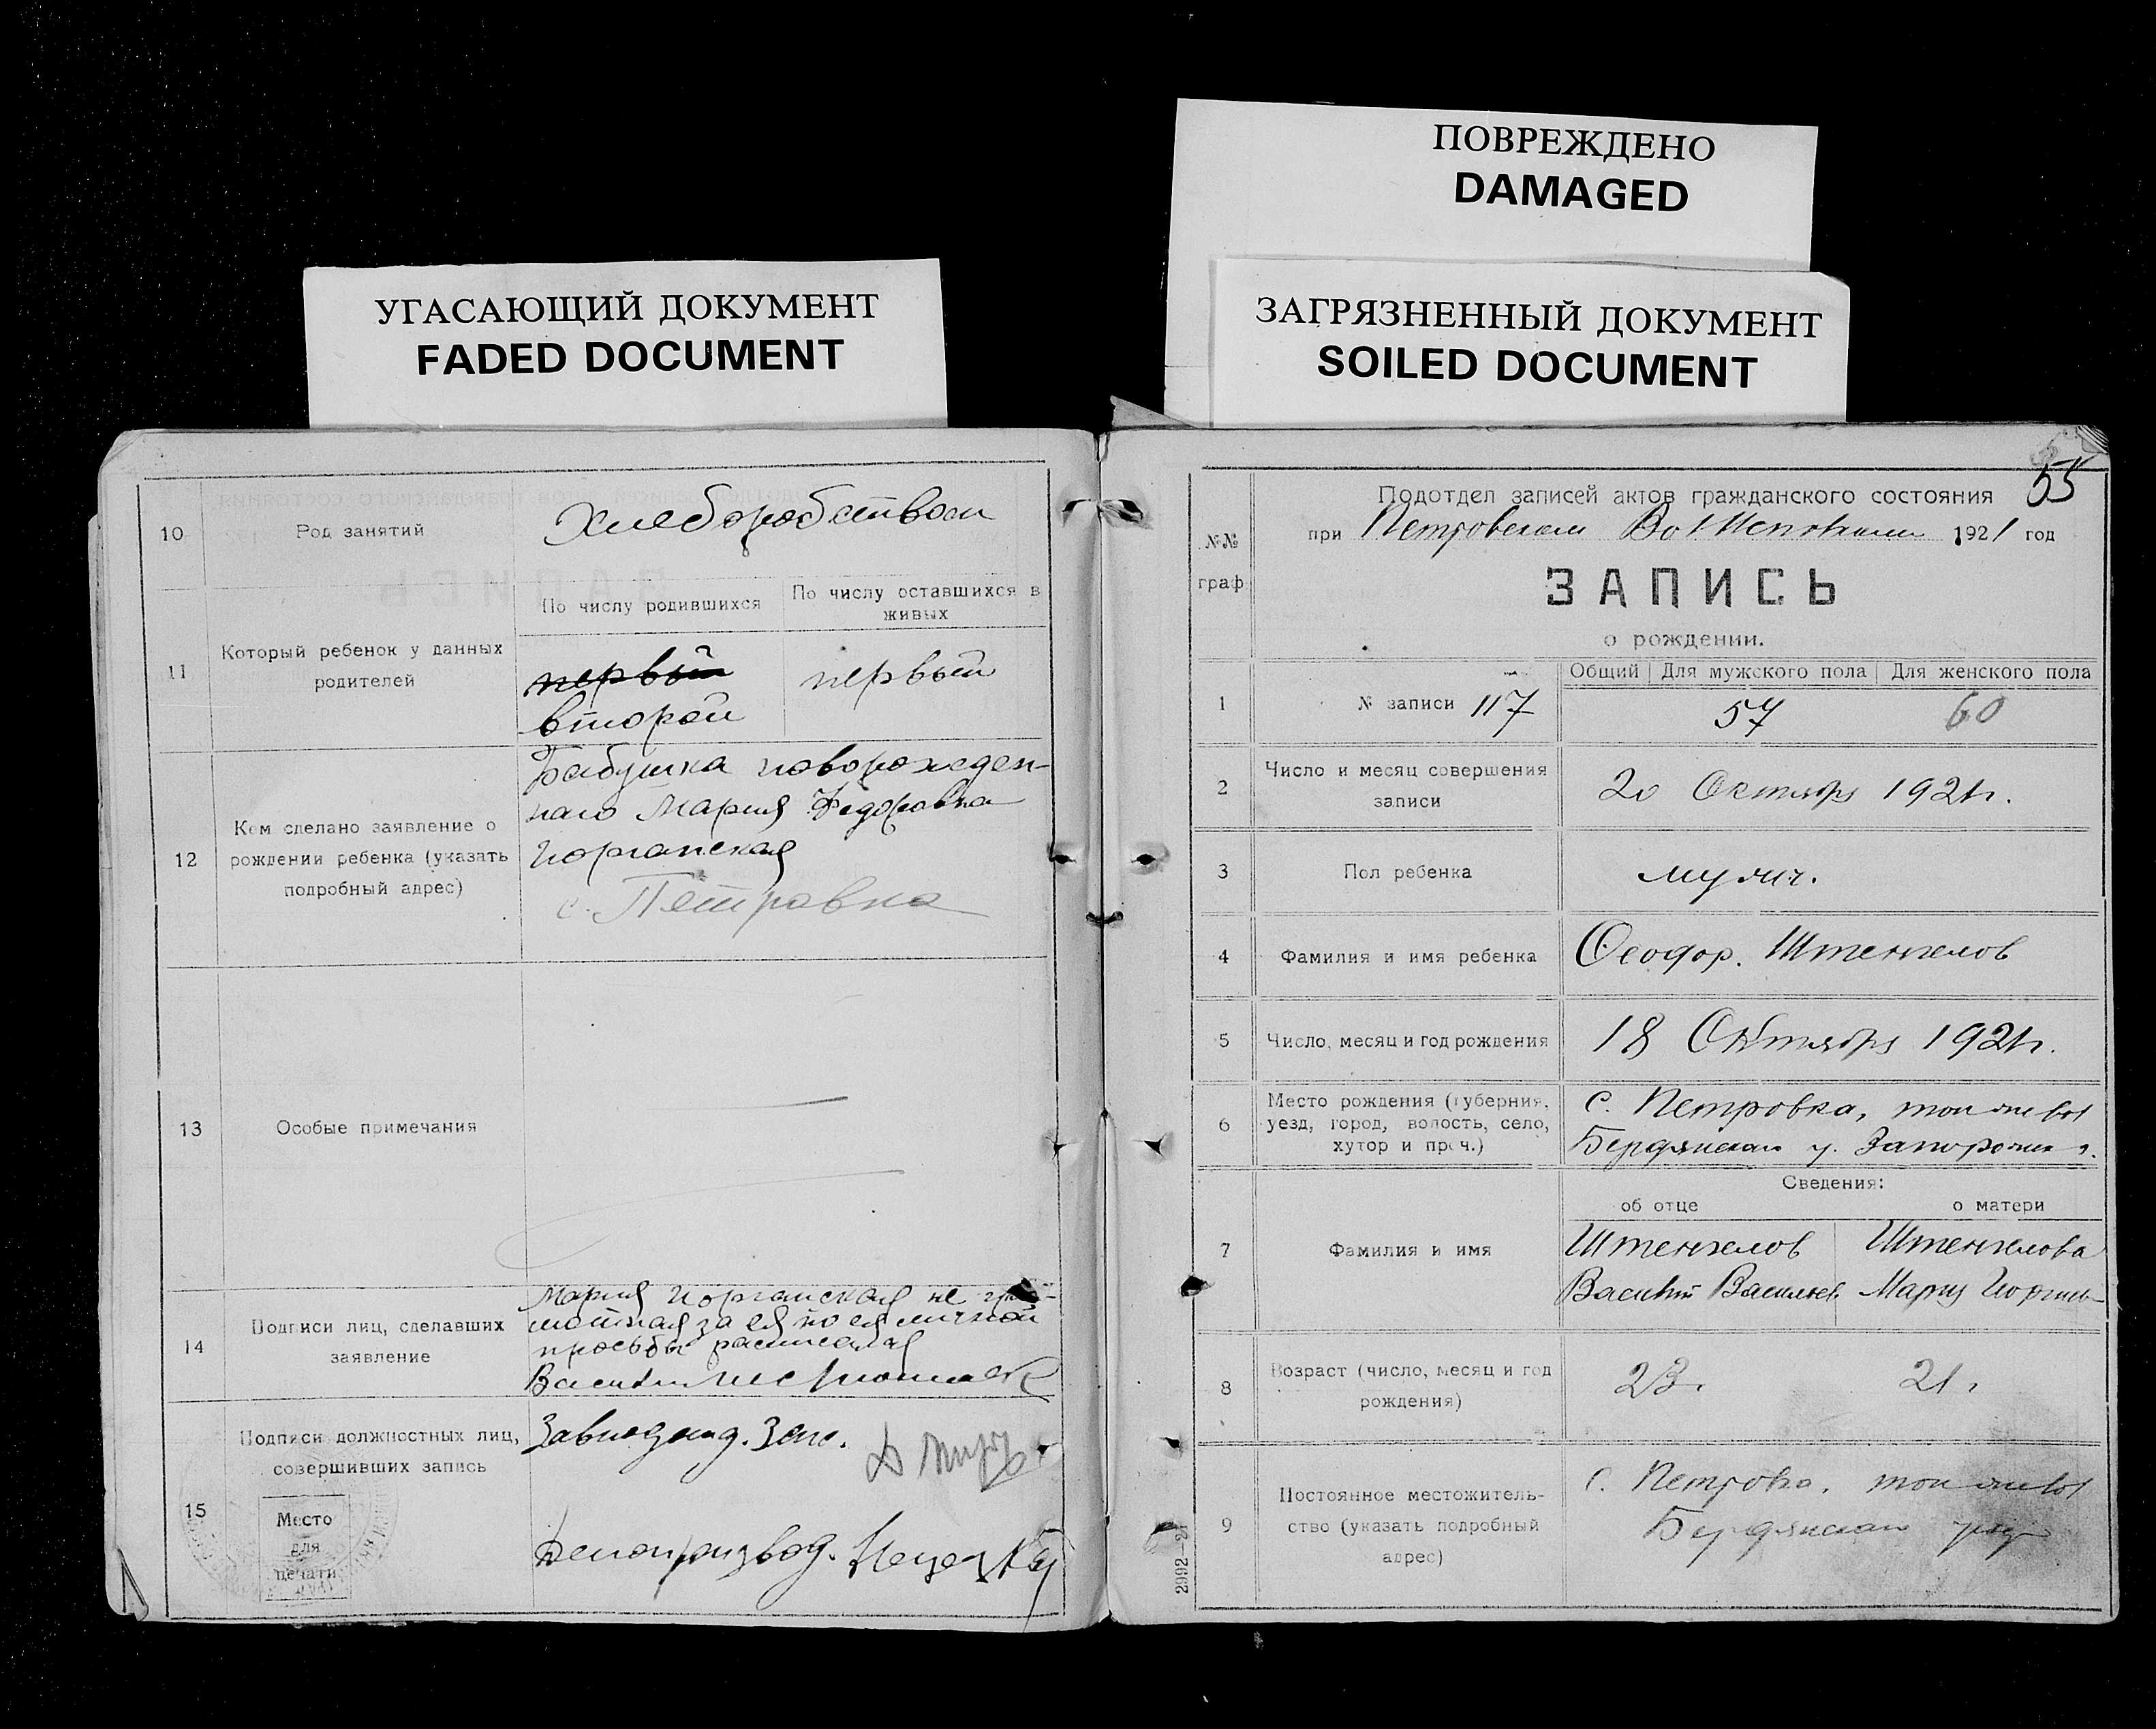 ПОВРЕЖДЕНО
DAMAGED
УГАСАЮЩИЙ ДОКУМЕНТ
FADED DOCUMENT
ЗАГРЯЗНЕННЫЙ ДОКУМЕНТ
SOILED DOCUMENT
10 Род занятий Хлеборобством
11 Который ребенок у данных родителей
По числу родившихся
По числу оставшихся в живых
первый
второй
первый
12 Кем сделано заявление о рождении ребенка (указать подробный адрес)
Бабушка новорожден-
наго Мария Федоровна
с. Петровка
13 Особые примечания
14 Подписи лиц, сделавших заявление
Мария не гра-
мотная за ея по ея личной
просьбы расписался
15 Подписи должностных лиц, совершивших запись
Место
для
печати
Делопроизвод.
55
Подотдел записей актов гражданского состояния
при Петровском 1921 год
№№ граф
ЗАПИСЬ
о рождении.
Общий Для мужского пола Для женского пола
1 № записи 117 57 60
2 Число и месяц совершения записи 20 Октября 1921 г.
3 Пол ребенка мужч.
4 Фамилия и имя ребенка Феодор. Штенгелов
5 Число, месяц и год рождения 18 Октября 1921 г.
6 Место рождения (губерния, уезд, город, волость, село, хутор и проч.)
с. Петровка, той же вол
Бердянскаго у. Запорожск г.
Сведения:
об отце о матери
7 Фамилия и имя
Штенгелов Штенгелова
Василий Васильев Мария
8 Возраст (число, месяц и год рождения) 23. 21.
9 Постоянное местожительство (указать подробный адрес)
с. Петровка, той же вол
Бердянскаго
2992—21